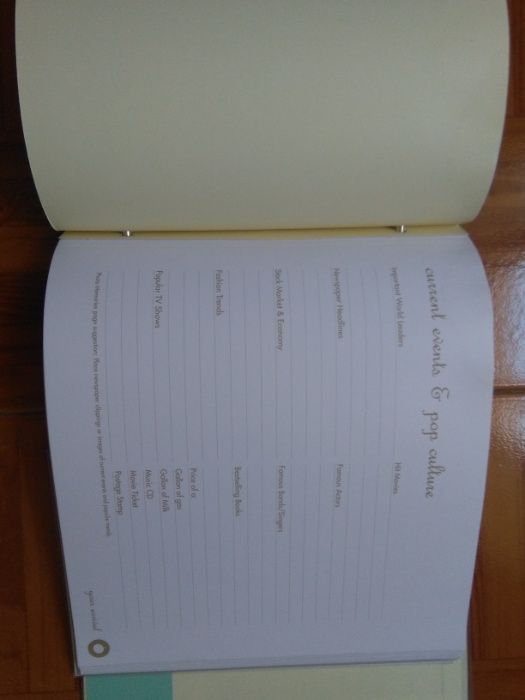 current events & pop culture
Important World Leaders
Newspaper Headlines
Stock Market & Economy
Fashion Trends
Popular TV Shows
Hit Movies
Famous Actors
Famous Bands/Singers
Bestselling Books
Price of a:
Gallon of gas
Gallon of Milk
Music CD
Movie Ticket
Postage Stamp
Photo Memories page suggestion: Place newspaper clippings or images of current events and popular trends.
your arrival